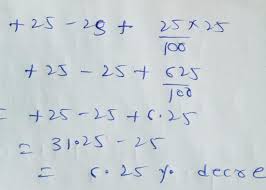 + 25 - 25 + 25 × 25 / 100
+ 25 - 25 + 625 / 100
= + 25 - 25 + 6.25
= 31.25 - 25
= 6.25 % decre